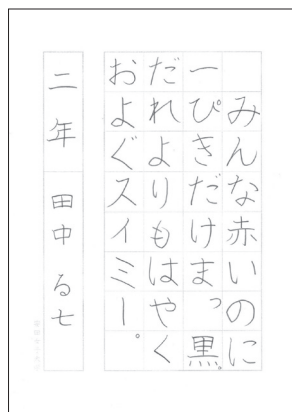 みんな赤いのに
一ぴきだけまっ黒。
だれよりもはやく
およぐスイミー。
二年 田中 る七